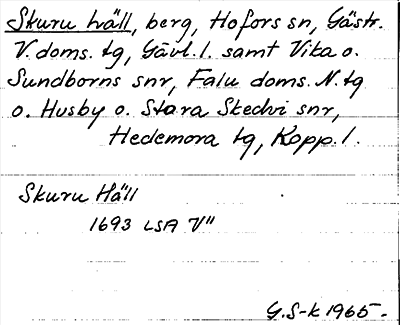 Skuru hväll, berg, Hofors sn, Gästr.
V. doms. tg, Gävl. l. samt Vika o.
Sundborns snr, Falu doms. N. tg
o. Husby o. Stora Skedvi snr,
Hedemora tg, Kopp. l.
Skuru Häll
1693 LSA V"
G.S-k 1965.